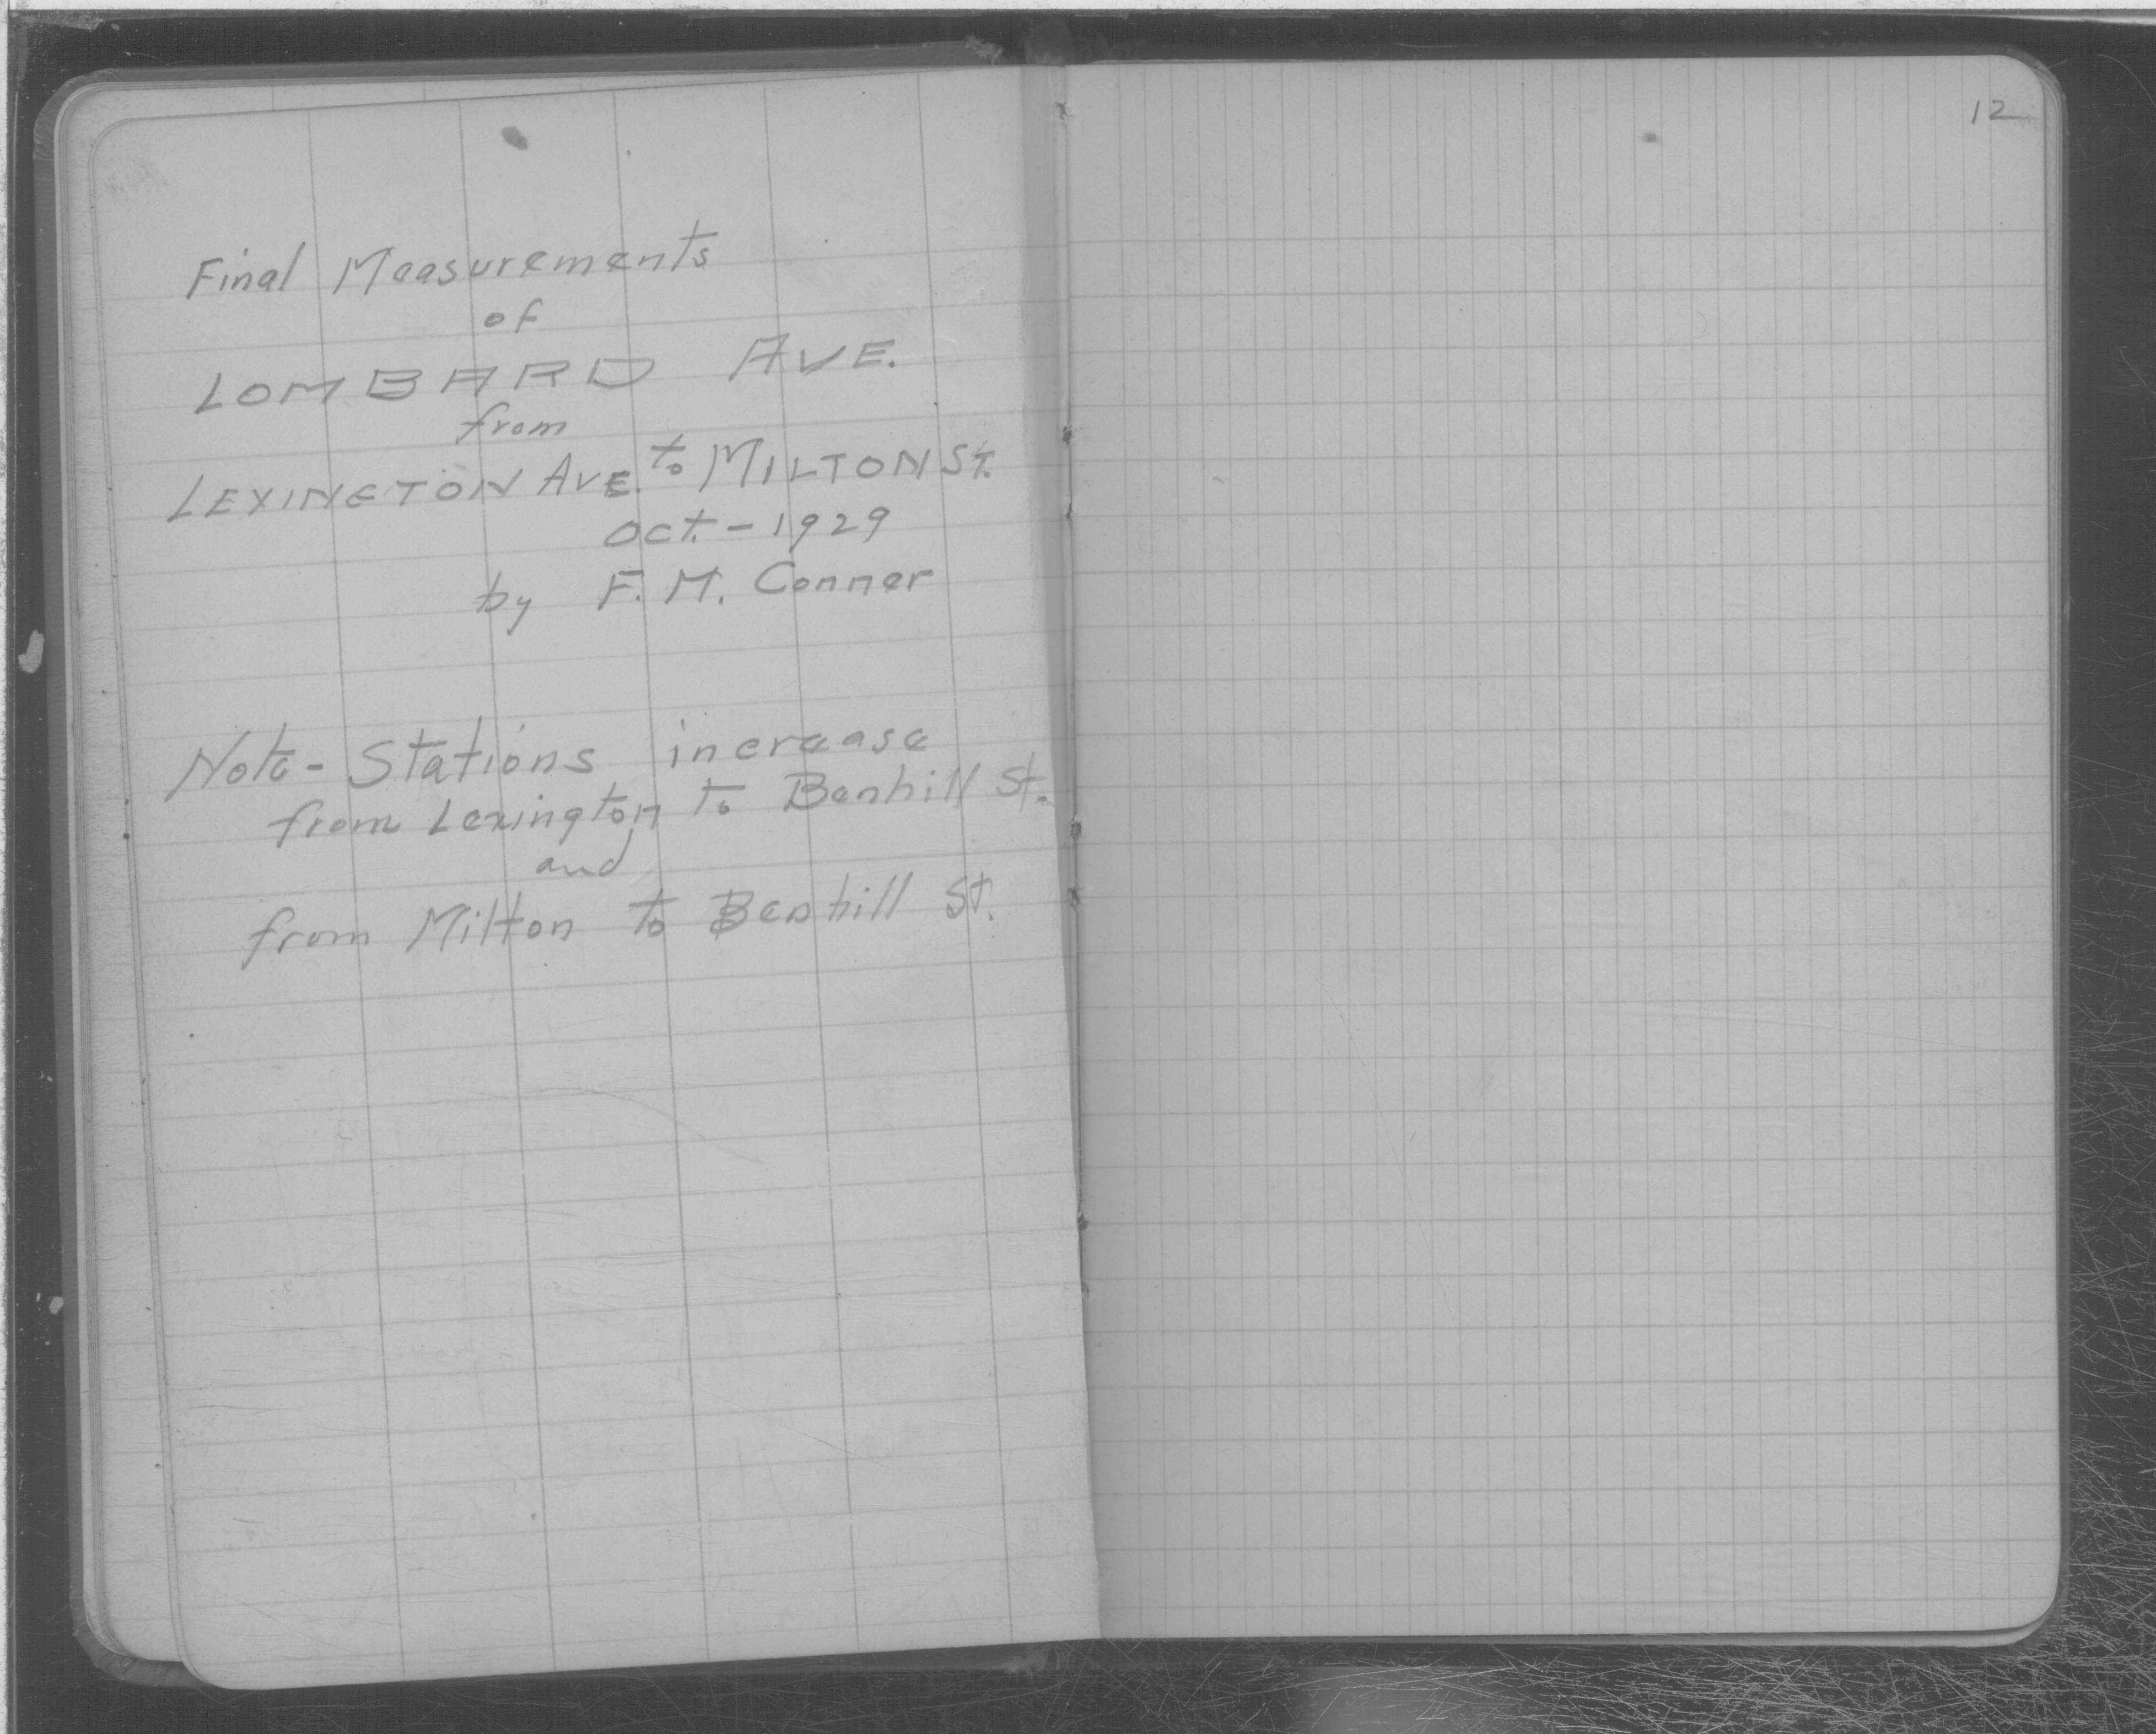 Final Measurements
of
LOMBARD AVE.
from
LEXINGTON AVE. to MILTON ST.
Oct. - 1929
by F. M. Conner
Note - Stations increase
from Lexington to Benhill St.
and
from Milton to Benhill St.
12